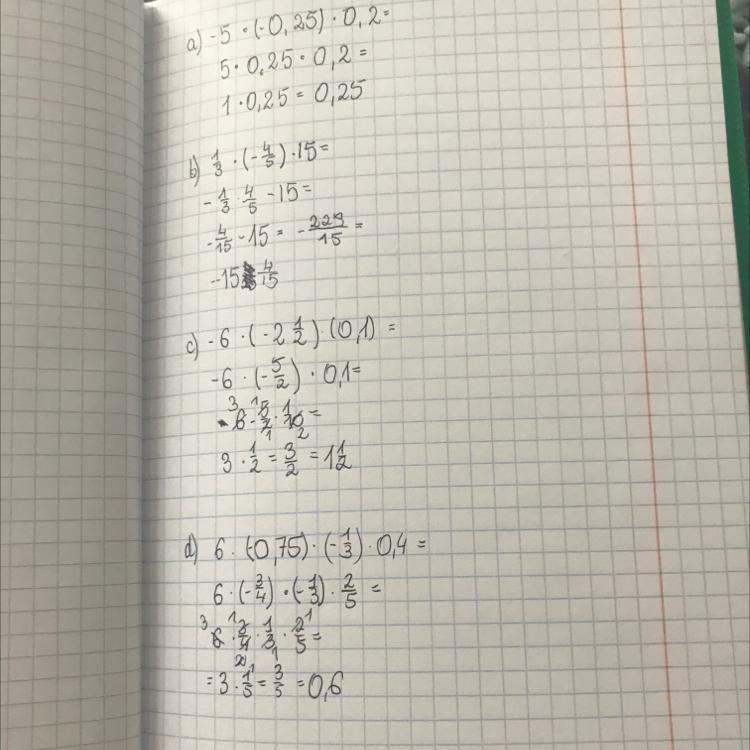 a) -5 · (-0,25) · 0,2 =
5 · 0,25 · 0,2 =
1 · 0,25 = 0,25
b) 1/3 · (-4/5) · 15 =
- 1/3 · 4/5 - 15 =
- 4/15 - 15 = - 229/15 =
-15 4/15
c) -6 · (-2 1/2) · (0,1) =
-6 · (-5/2) · 0,1 =
6 · 5/2 · 1/10 =
3 · 1/2 = 3/2 = 1 1/2
d) 6 · (-0,75) · (-1/3) · 0,4 =
6 · (-3/4) · (-1/3) · 2/5 =
6 · 3/4 · 1/3 · 2/5 =
= 3 · 1/5 = 3/5 = 0,6